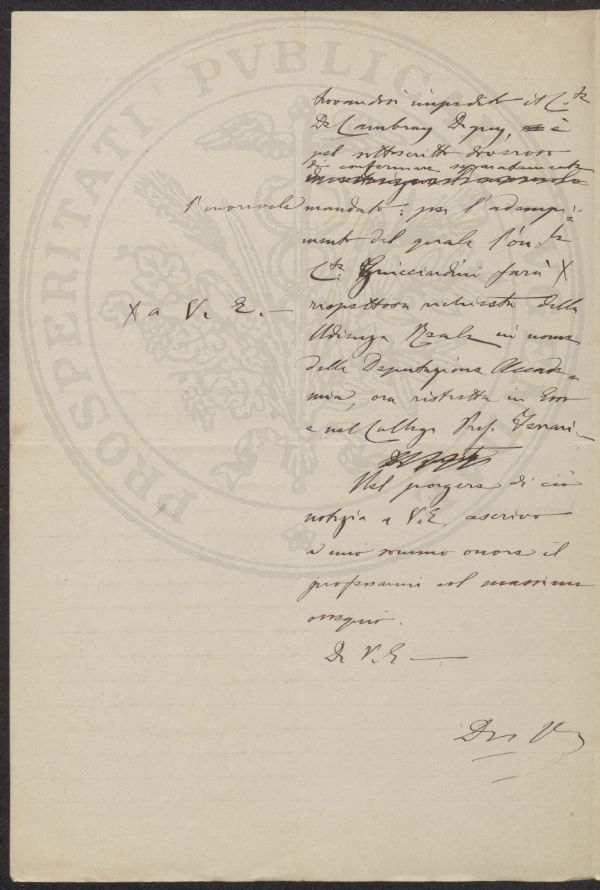 PROSPERITATI PVBLICAE
trovandosi impedito il C.te
De Cambray Digny, è
pel sottoscritto doveroso
di confermare separatamente
l'onorevole mandato; per l'adempi=
mento del quale l'on.le
C.te Guicciardini farà X
X a V. E. —
rispettosa richiesta della
Udienza Reale in nome
della Deputazione Accade=
mica, ora ristretta in Esso
e nel Collega Prof. Ferrari
Nel porgere di ciò
notizia a V.E. ascrivo
a mio sommo onore il
professarmi col massimo
ossequio.
Di V.E —